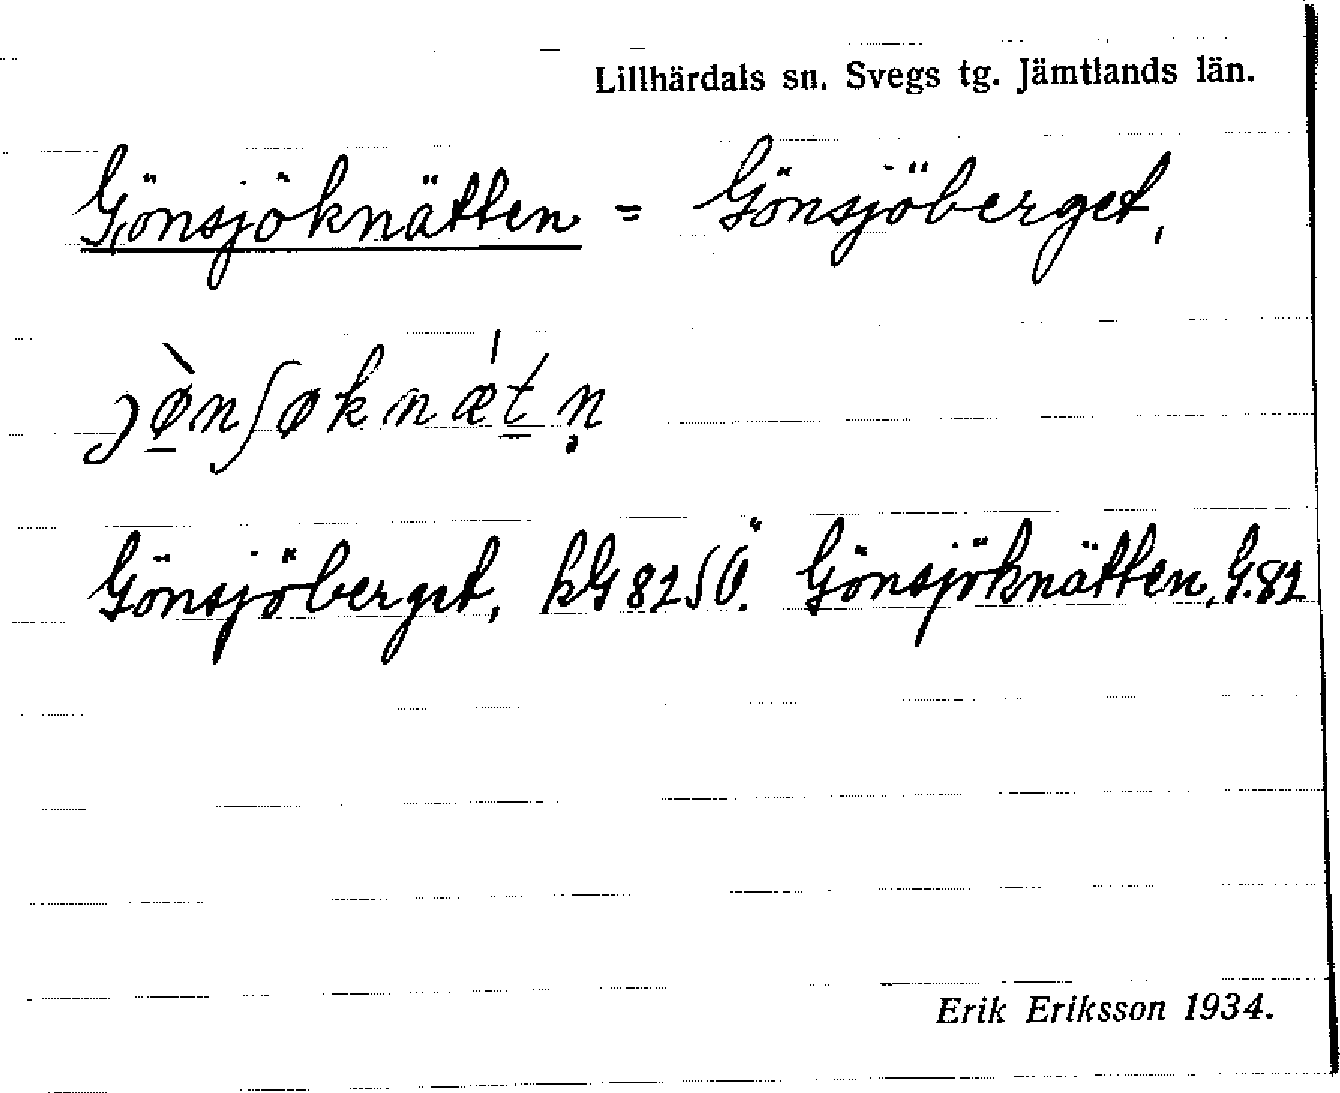 Lillhärdals sn. Svegs tg. Jämtlands län.
Gönsjöknätten = Gönsjöberget,
Gönsjöberget, kG 82 SÖ. Gönsjöknätten, G.82
Erik Eriksson 1934.